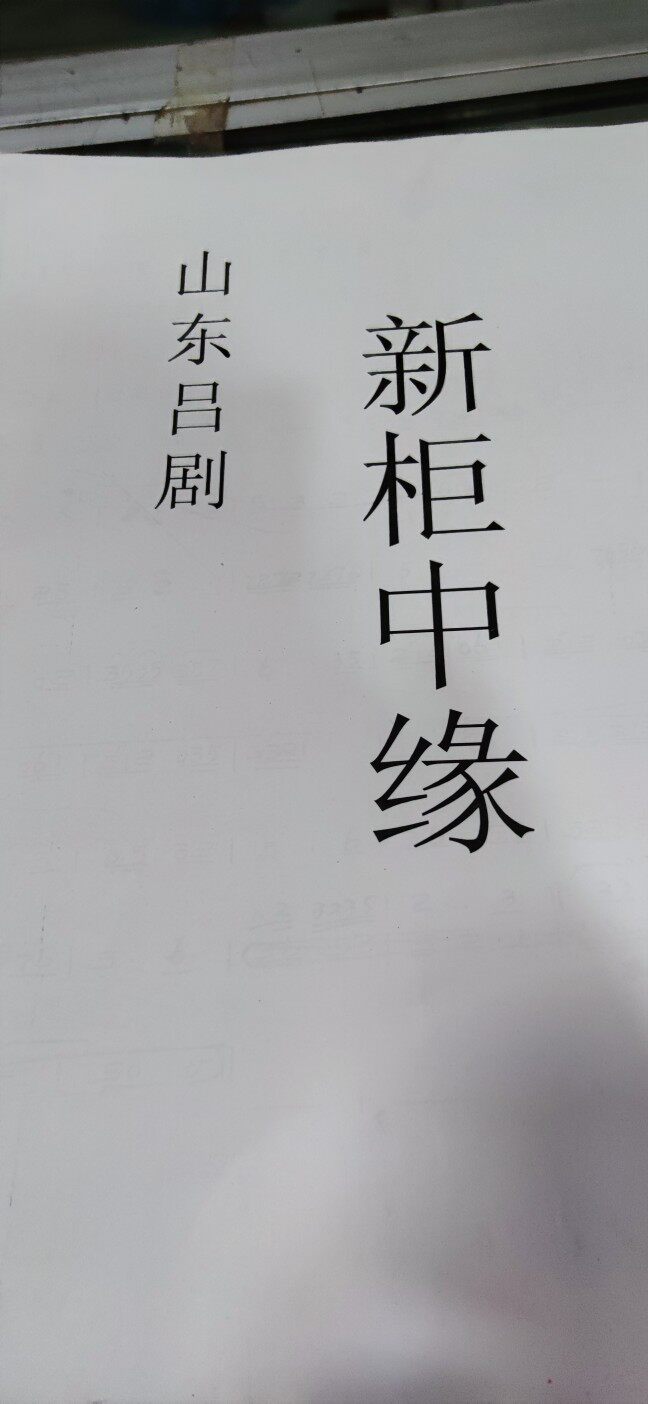 新柜中缘
山东吕剧